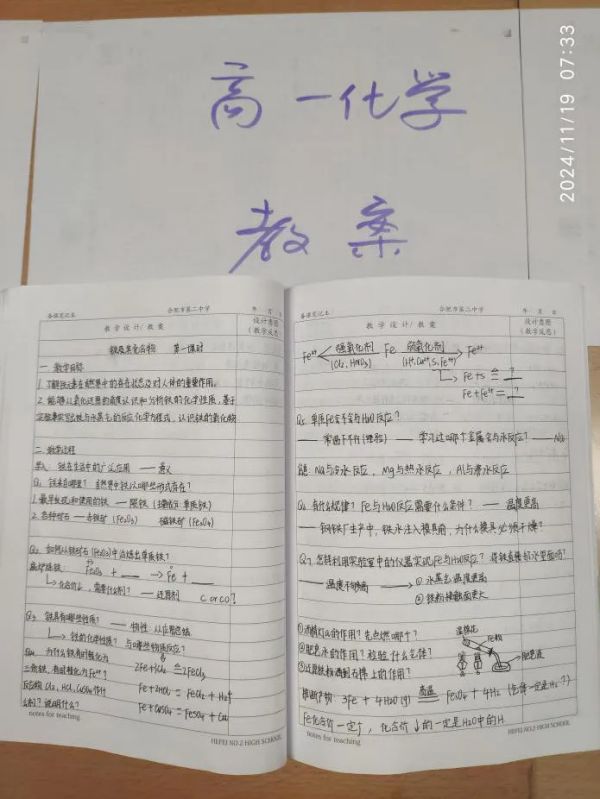 高一化学
教案
2024/11/19 07:33
备课笔记本
合肥市第二中学
年 月 日
教学设计/教案
设计意图
(教学反思)
铁及其化合物 第一课时
一、教学目标
1.了解铁元素在自然界中的存在状态及对人体的重要作用。
2.能够从氧化还原的角度认识和分析铁的化学性质,基于
实验事实写出铁与水蒸气的反应化学方程式,认识铁的氧化物
二、教学过程
导入 铁在生活中的广泛应用 —— 意义
Q1 铁来自哪里? 自然界中铁以哪些形式存在?
1.最早发现和使用的铁 —— 陨铁
2.各种矿石 —— 赤铁矿(Fe2O3) 磁铁矿(Fe3O4)
Q2 如何从铁矿石(Fe2O3)中冶炼出单质铁?
高炉炼铁: Fe2O3 + __ → Fe + __
化合价↓,需要什么剂? —— 还原剂 C or CO?
Q3 铁具有哪些性质? —— 物性:
铁的化学性质? 与哪些物质反应?
Q4 为什么铁有时氧化为
三价铁,有时氧化为Fe2+?
2Fe+3Cl2 = 2FeCl3
Fe + 2HCl = FeCl2 + H2↑
Fe + CuSO4 = FeSO4 + Cu
反应物Cl2, HCl, CuSO4作什
么剂?说明什么?
notes for teaching
HEFEI NO.2 HIGH SCHOOL
备课笔记本
合肥市第二中学
年 月 日
教学设计/教案
设计意图
(教学反思)
Fe3+ 强氧化剂 Fe 弱氧化剂 Fe2+
(Cl2, HNO3) (H+, Cu2+, S, Fe3+)
Fe + S = ?
Fe + Fe3+ = ?
Q5 单质Fe会不会与H2O反应?
—— 常温下不行 —— 学习过哪个金属会与水反应? —— Na
Na与冷水反应,Mg与热水反应,Al与沸水反应
Q6 有什么规律? Fe与H2O反应需要什么条件? —— 温度更高
—— 钢铁厂生产中,铁水注入模具前,为什么模具必须干燥?
Q7 怎样利用实验室中的仪器实现Fe与H2O反应? 将铁直接加水里面吗?
—— 温度不够高 ① 水蒸气温度更高
② 铁粉接触面更大
①酒精灯的作用?先点燃哪个?
②肥皂水的作用?检验什么气体?
湿棉花
Fe粉
肥皂液
3Fe + 4H2O(g) 高温 Fe3O4 + 4H2 (气体一定是H2?)
Fe化合价一定↑,化合价↓的一定是H2O中的H
notes for teaching
HEFEI NO.2 HIGH SCHOOL